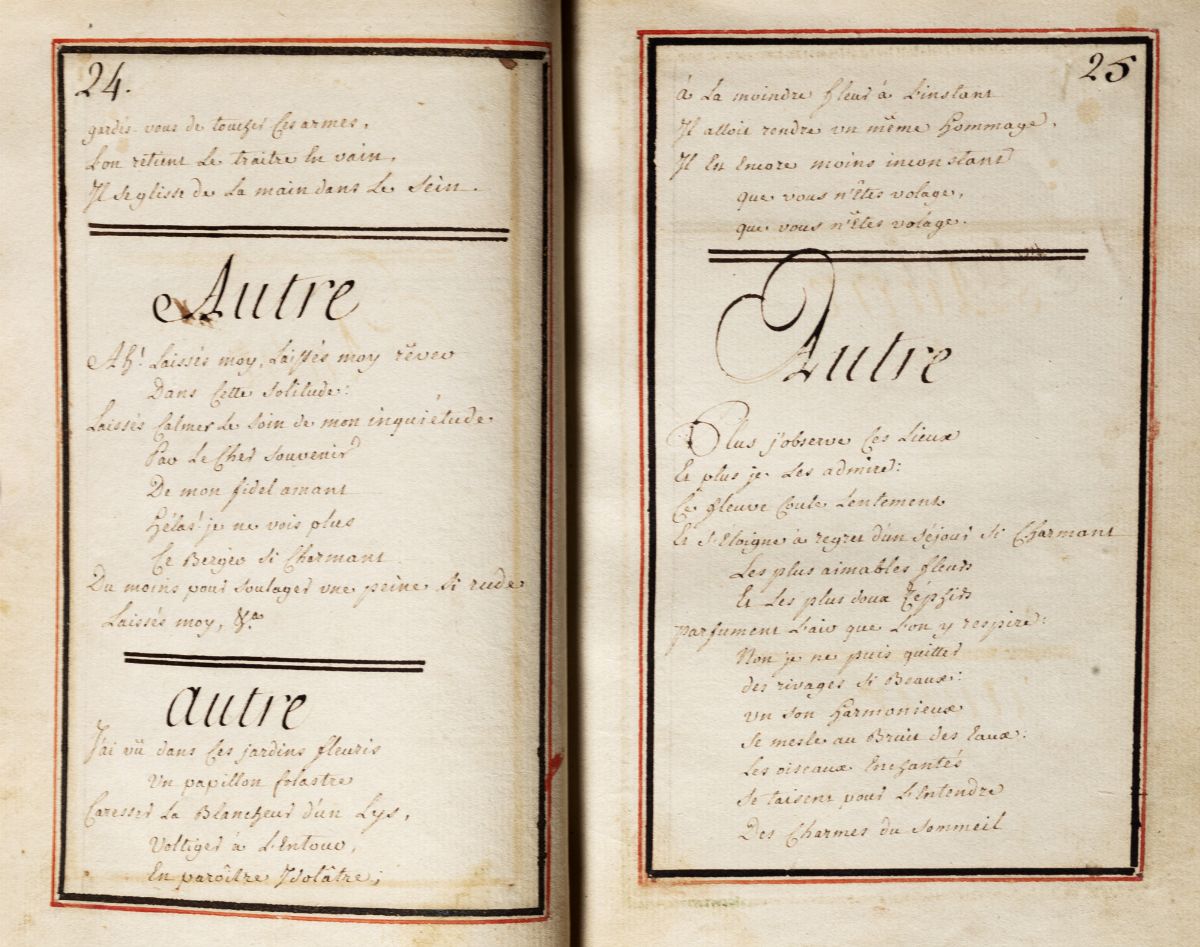 24.
gardés-vous de toucher Ces armes,
L'on retient Le traitre En vain,
Il se glisse de La main dans Le Sein.
Autre
Ah! Laissés moy, Laissés moy rêver
Dans Cette Solitude:
Laissés Calmer Le Soin de mon inquiétude
Par Le Cher Souvenir
De mon fidel amant
Hélas! je ne vois plus
Ce Berger Si Charmant
Du moins pour Soulager une peine Si rude
Laissés moy, &a.
autre
J'ai vû dans Ces jardins fleuris
Un papillon folastre
Caresser La Blancheur d'un Lys,
Voltiger à L'Entour,
En paroître Idolâtre;
25
à La moindre fleur à L'instant
Il alloit rendre un même Hommage,
Il En Encore moins inconstant
que vous n'Êtes volage,
que vous n'Êtes volage.
Autre
Plus j'observe Ces Lieux
Et plus je Les admire:
Ce fleuve Coule Lentement
Et S'Éloigne à regret d'un Séjour Si Charmant
Les plus aimables fleurs
Et Les plus doux Zéphirs
parfument L'air que L'on y respire:
Non je ne puis quitter
des rivages Si Beaux:
un Son Harmonieux
Se mesle au Bruit des Eaux:
Les oiseaux Enchantés
Se taisent pour L'Entendre
Des Charmes du Sommeil